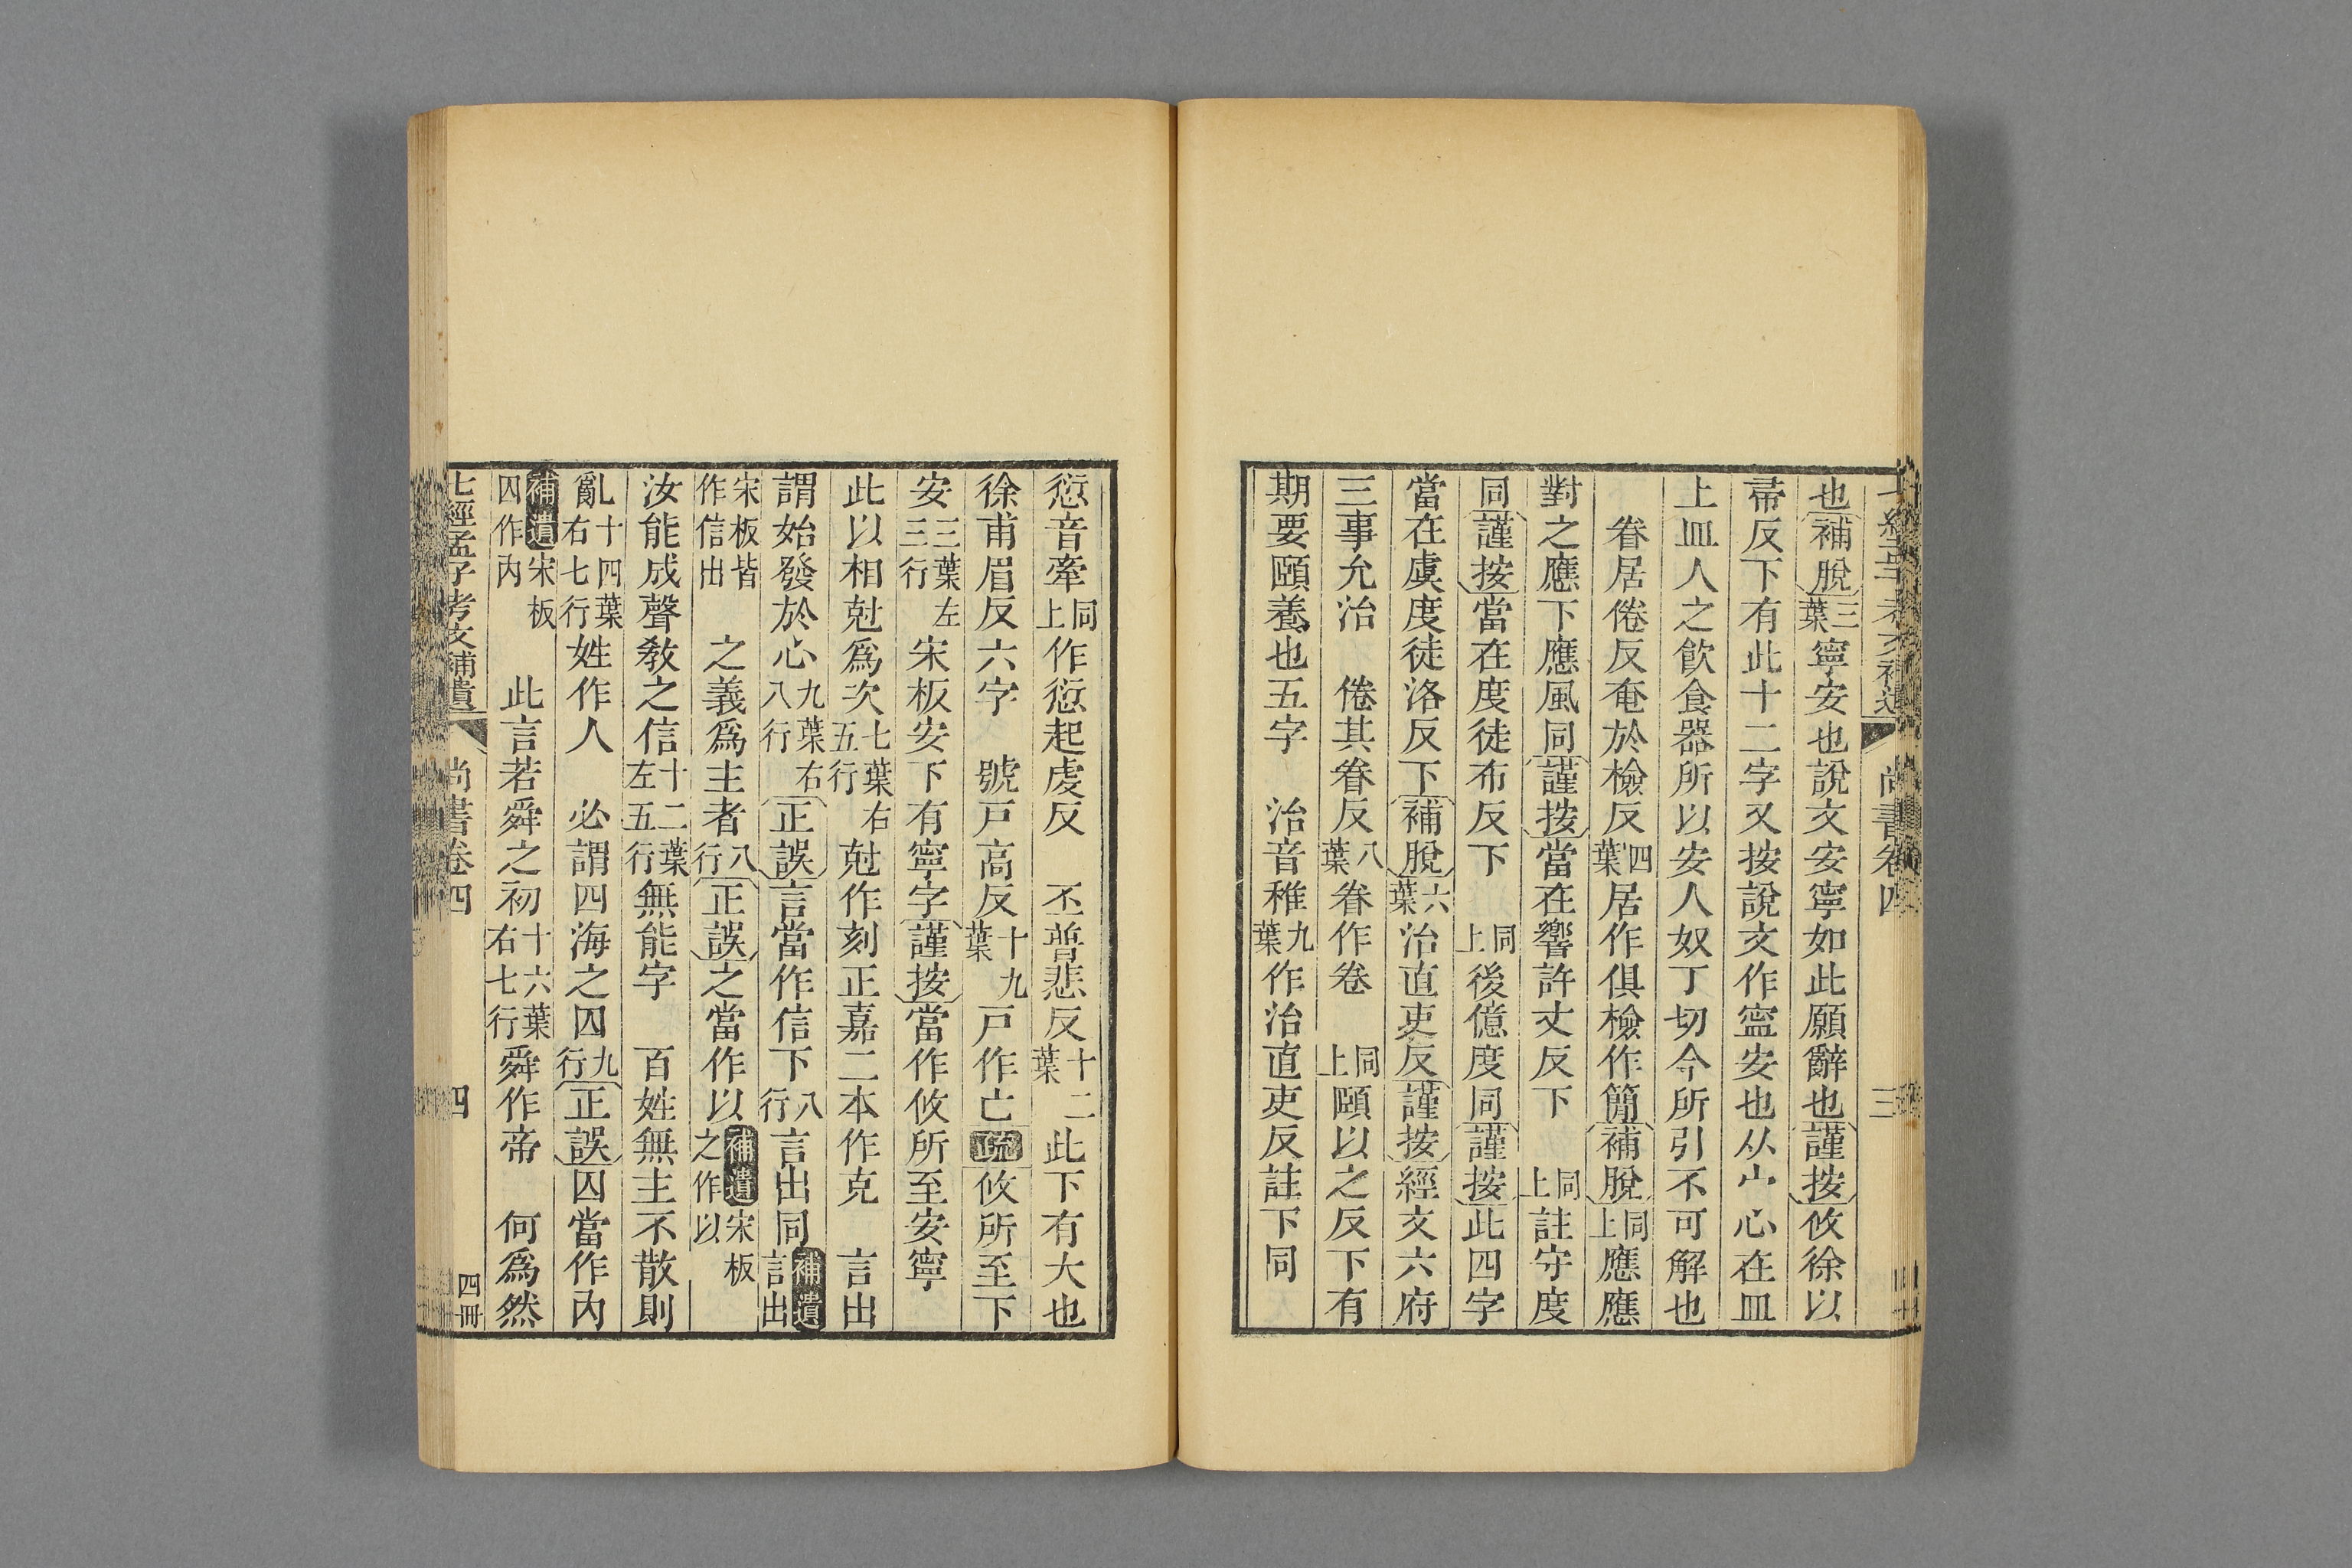 也補脫三葉寧安也說文安寧如此願辭也謹按攸徐以
帚反下有此十二字又按說文作寍安也从宀心在皿
上皿人之飮食器所以安人奴丁切今所引不可解也
眷居倦反奄於檢反四葉居作俱檢作簡補脫同上應應
對之應下應風同謹按當在響許丈反下同上註守度
同謹按當在度徒布反下同上後億度同謹按此四字
當在虞度徒洛反下補脫六葉治直吏反謹按經文六府
三事允治 倦其眷反八葉眷作卷同上頤以之反下有
期要頤養也五字 治音稚九葉作治直吏反註下同
愆音牽同上作愆起虔反 丕普悲反十二葉此下有大也
徐甫眉反六字 號戸高反十九葉戸作亡疏攸所至下
安三葉左三行宋板安下有寧字謹按當作攸所至安寧
此以相尅爲次七葉右五行尅作刻正嘉二本作克 言出
謂始發於心九葉右八行正誤言當作信下八行言出同補遺言出
宋板皆作信出 之義爲主者八行正誤之當作以補遺宋板之作以
汝能成聲敎之信十二葉左五行無能字 百姓無主不散則
亂十四葉右七行姓作人 必謂四海之囚九行正誤囚當作內
補遺宋板四作內 此言若舜之初十六葉右七行舜作帝 何爲然
七經孟子考文補遺 尚書卷四 四 四冊